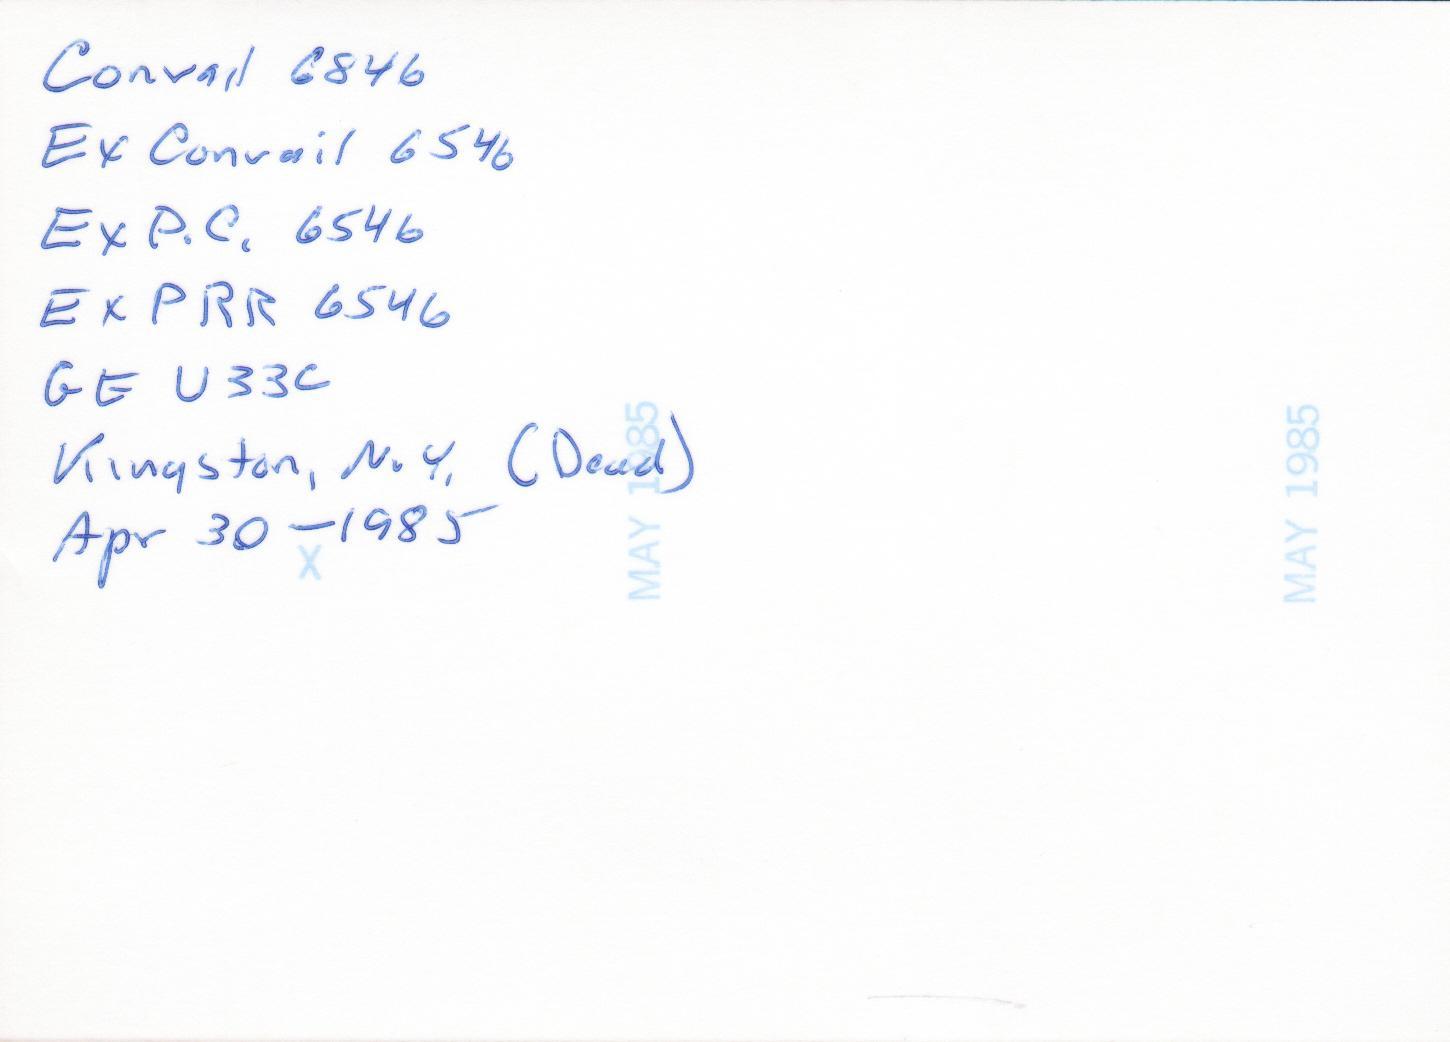 Conrail 6846
Ex Conrail 6546
Ex P.C. 6546
Ex PRR 6546
GE U33C
Kingston, N.Y. (Dead)
Apr 30 - 1985
X
MAY 1985
MAY 1985